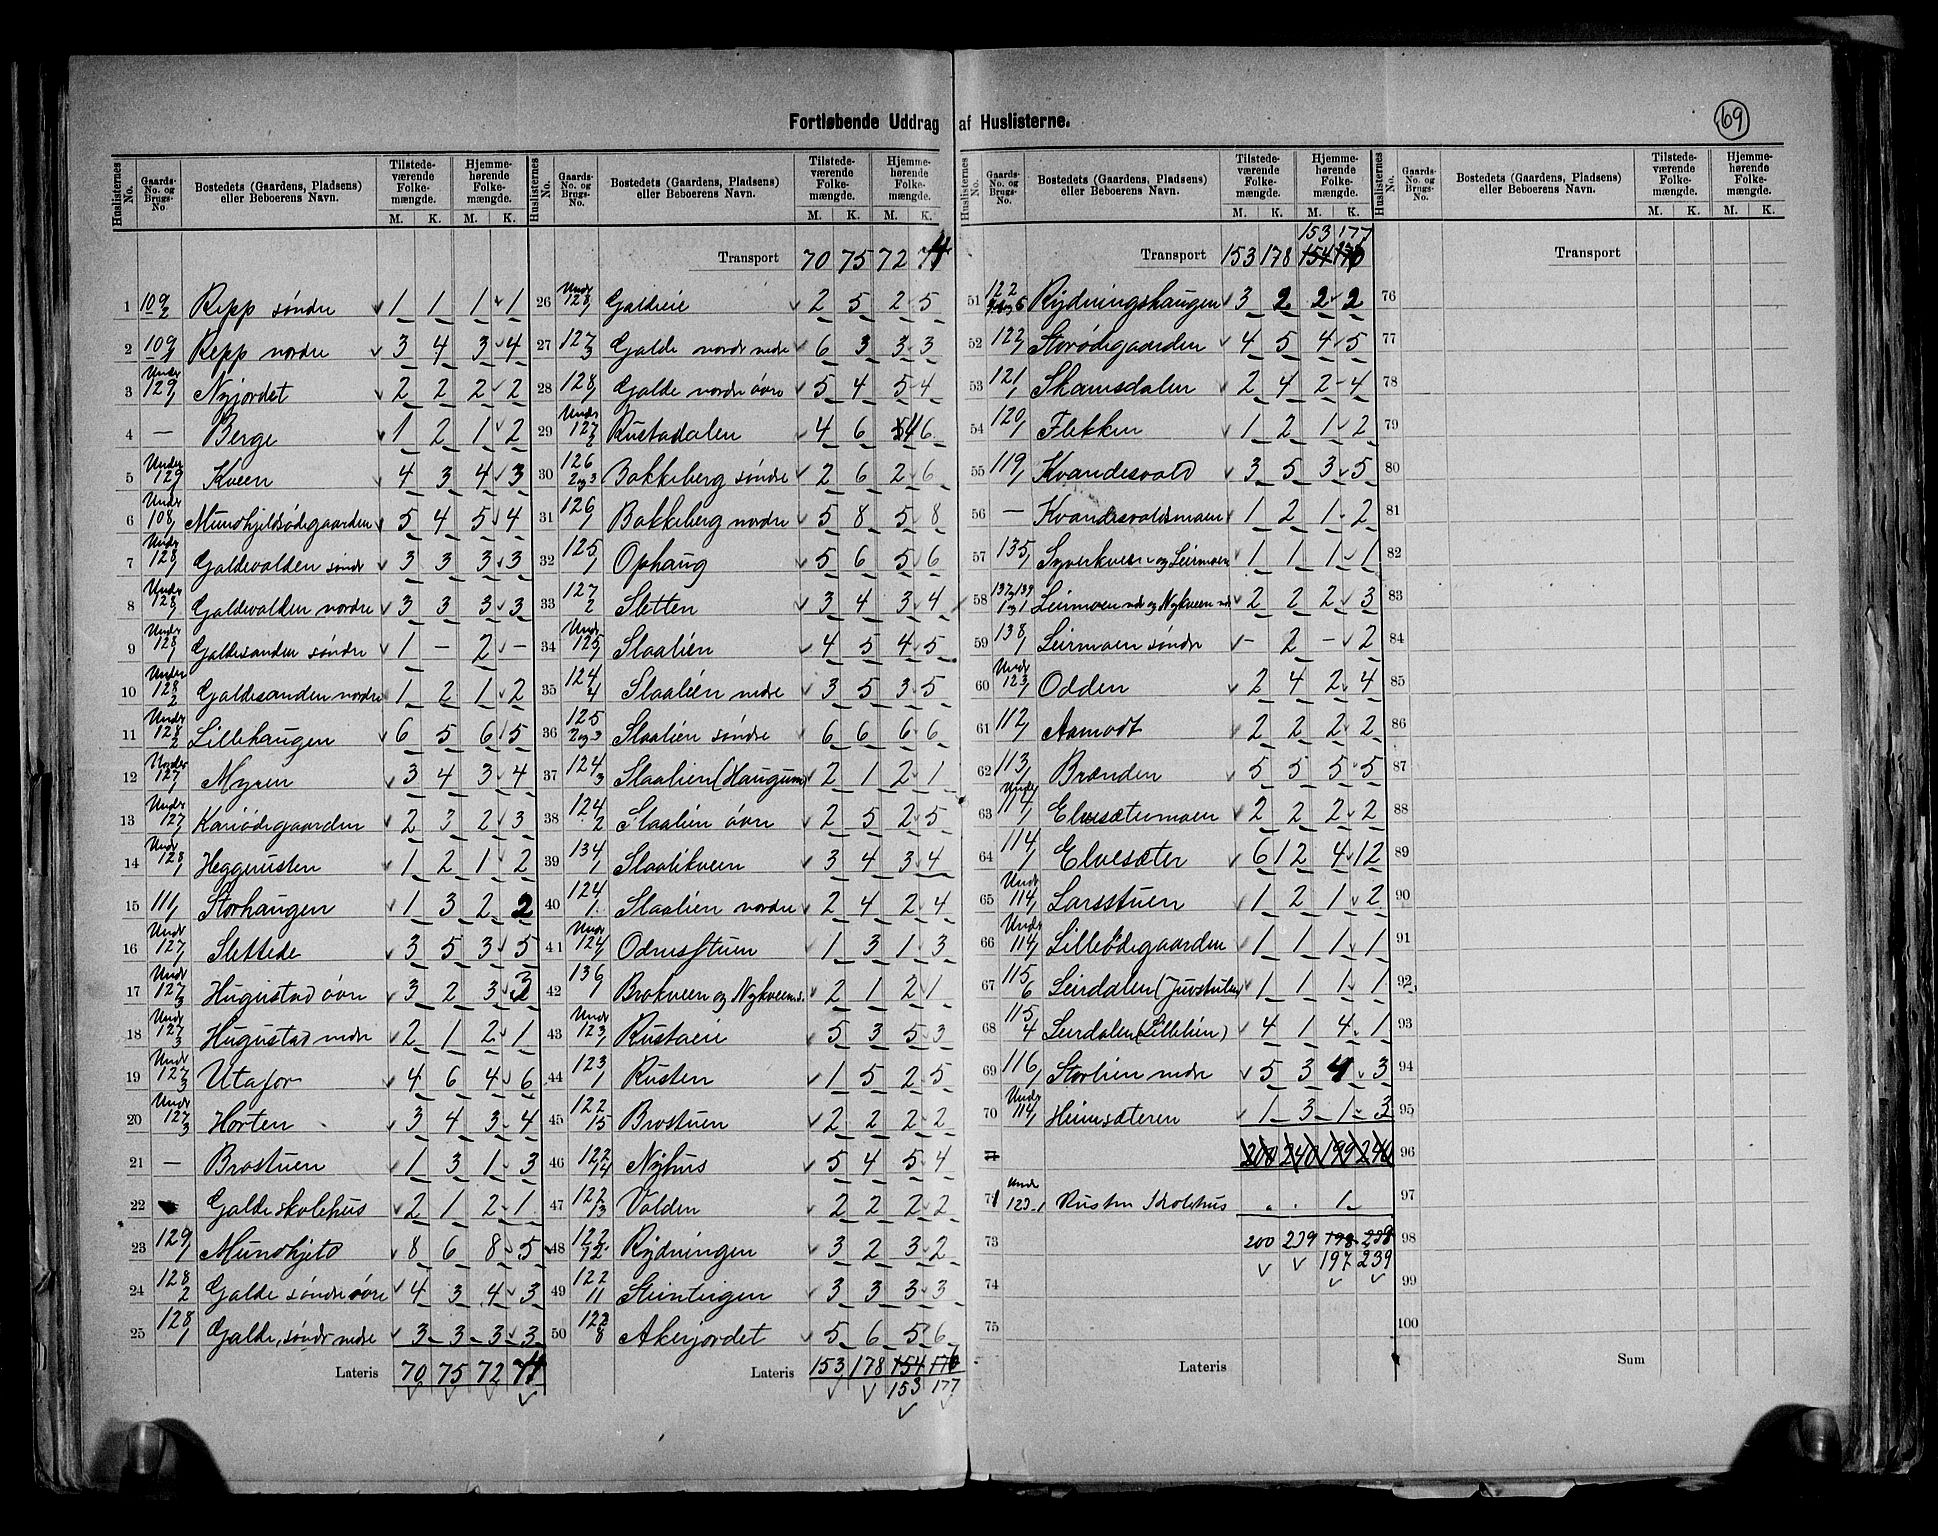 Fortløbende Uddrag af Huslisterne.
69
Huslisternes No. Gaards-No. og Brugs-No. Bostedets (Gaardens, Pladsens) eller Beboerens Navn. Tilstedeværende Folkemængde. M. K. Hjemmehørende Folkemængde. M. K.
1 109/2 Repp søndre 1 1 1 1
2 109/1 Repp nordre 3 4 3 4
3 Under 129/1 Nyjordet 2 2 2 2
4 — Berge 1 2 1 2
5 Under 129/1 Kveen 4 3 4 3
6 Under 108/1 Mundhjeldsødegaarden 5 4 5 4
7 Under 128/1 Galdevolden søndr 3 3 3 3
8 Under 128/1 Galdevolden nordre 3 3 3 3
9 Under 128/1 Galdesanden søndre 1 – 2 –
10 Under 128/2 Galdesanden nordre 1 2 1 2
11 Under 128/2 Lillehaugen 6 5 6 5
12 Under 127/1 Myren 3 4 3 4
13 Under 127/1 Kariødegaarden 2 3 2 3
14 Undr 128/1 Heggerusten 1 2 1 2
15 111/1 Storhaugen 1 3 2 2
16 Undr 127/1 Slettede 3 5 3 5
17 Und 127/3 Hugustad øvre 3 2 3 3
18 Undr 127/3 Hugustad nedre 2 1 2 1
19 Undr 127/3 Utafor 4 6 4 6
20 Undr 127/3 Horten 3 4 3 4
21 — Brostuen 1 3 1 3
22 Galde skolehus 2 1 2 1
23 129/1 Mundhjeld 8 6 8 5
24 128/2 Galde søndre øvre 4 3 4 3
25 128/1 Galde, søndr nedre 3 3 3 3
Lateris 70 75 72 74
Transport 70 75 72 74
26 Undr 128/1 Galdeeie 2 5 2 5
27 127/3 Galde nordr nedre 6 3 3 3
28 128/1 Galde nordre øvre 5 4 5 4
29 Undr 127/3 Rustadalen 4 6 4 6
30 126/2og3 Bakkeberg søndre 2 6 2 6
31 126/1 Bakkeberg nordre 5 8 5 8
32 125/1 Ophaug 5 6 5 6
33 127/2 Sletten 3 4 3 4
34 Und 125/1 Slaalien 4 5 4 5
35 124/4 Slaalien nedre 3 5 3 5
36 125/2og3 Slaalien søndre 6 6 6 6
37 124/3 Slaalien (Haugum) 2 1 2 1
38 124/2 Slaalien øvre 2 5 2 5
39 134/1 Slaalikveen 3 4 3 4
40 124/1 Slaalien nordre 2 4 2 4
41 Undr 124/1 Odnesstuen 1 3 1 3
42 136/1 Brokveen og Nykveen s. 2 1 2 1
43 Undr 123/1 Rustaeie 5 3 5 3
44 123/1 Rusten 1 5 2 5
45 122/15 Brostuen 2 2 2 2
46 122/14 Nyhus 5 4 5 4
47 122/13 Volden 2 2 2 2
48 122/12 Rydningen 3 2 3 2
49 122/11 Steinteigen 3 3 3 3
50 122/8 Akerjordet 5 6 5 6
Lateris 153 178 154 176
153 177
153 177
Transport 153 178 154 176
51 122 Rydningshaugen 3 2 2 2
52 122/1 Storødegaarden 4 5 4 5
53 121/1 Skamsdalen 2 4 2 4
54 120/1 Flekken 1 2 1 2
55 119/1 Kvandesvold 3 5 3 5
56 — Kvandesvoldsmoen 1 2 1 2
57 135/1 Syverkveen og Leirmoen 1 1 1 1
58 137,139/1og1 Leirmoen ndr og Nykveen nd 2 2 2 3
59 138/1 Leirmoen søndre – 2 – 2
60 Undr 123/1 Odden 2 4 2 4
61 112/1 Aamodt 2 2 2 2
62 113/1 Brænden 5 5 5 5
63 Under 114/1 Elvesætermoen 2 2 2 2
64 114/1 Elvesæter 6 12 4 12
65 Undr 114/1 Larsstuen 1 2 1 2
66 Undr 114/1 Lilleødegaarden 1 1 1 1
67 115/6 Leirdalen (Juvstulen) 1 1 1 1
68 115/4 Leirdalen (Lillelien) 4 1 4 1
69 116/1 Storlien nedre 5 3 4 3
70 Undr 114/1 Heimsæteren 1 3 1 3
200 240 199 240
71 Und 123-1 Rusten Skolehus . . 1 –
73 200 239 198 238
197 239
74
75
Lateris
Transport
76
77
78
79
80
81
82
83
84
85
86
87
88
89
90
91
92
93
94
95
96
97
98
99
100
Sum